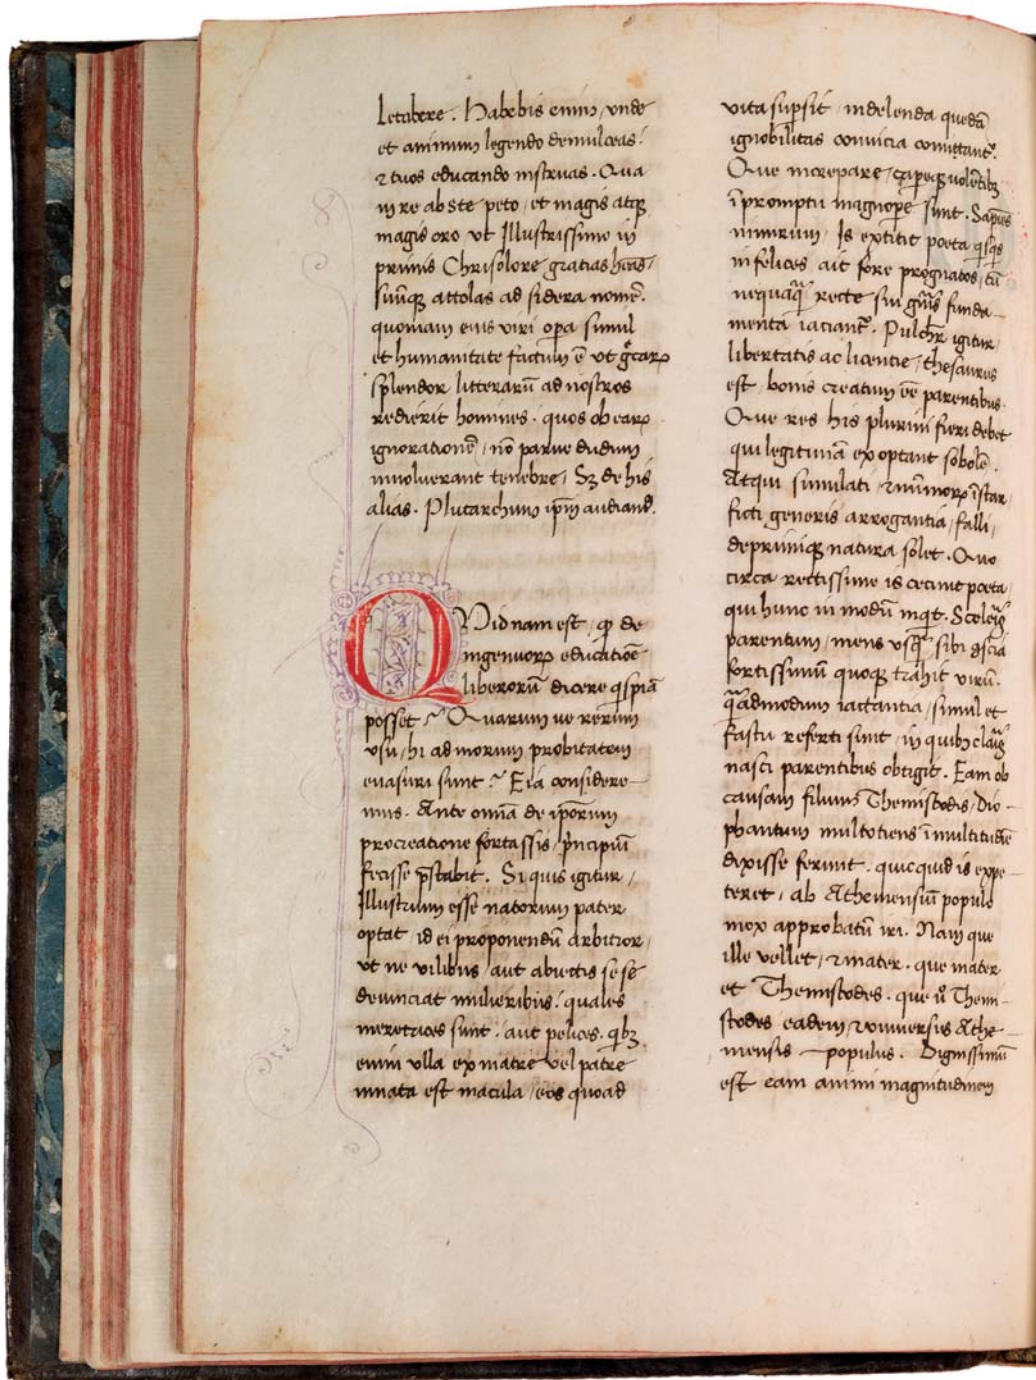 letabere. Habebis enim, unde
et animum legendo demulceas:
⁊ tuos educando instruas. Qua
in re abs te peto, et magis atqꝫ
magis oro vt Illustrissimo in
primis Chrisolore gratias hēas,
suūqꝫ attolas ad sidera nomē.
quoniam eius viri opa simul
et humanitate factum ē vt gͨcaꝝ
splendor litterarū ad nostros
redierit homines. quos ob eaꝝ
ignorationē, nō parue dudum
inuoluerant tenebre, Sꝫ de his
alias. Plutarchum ipm̄ audiand.
QVid nam est, ꝙ de
ingenuoꝝ educatiōe
liberorū dicere qͥspiā
posset? Quarum ue rerum
vsu, hi ad morum probitatem
euasuri sunt? Eia considere-
mus. Ante omīa de ipoꝝum
procreatione fortassis, pͥncipiū
fecisse p̄stabit. Si quis igitur,
Illustrium esse natorum pater
optat, id ei proponendū arbitror,
vt ne vilibus, aut abiectis sese
deuinciat mulieribus: quales
meretrices sunt. aut pelices. qͥbꝫ
enim vlla ex matre vel patre
innata est macula, eos quoad
vita supsit, indelenda quedā
ignobilitas conuicia comittant᷑.
Que increpare, capeqꝫ uolētibꝫ
ī promptu magnope sunt. Sapiēs
nimirum, is extitit poeta qͥsqͥs
infelices ait fore prognatos, cū
nequāqͣ recte sui gn̄is funda-
menta iaciant᷑. Pulchr igitur,
libertatis ac licentie, thesaurus
est, bonis creatum ēē parentibus.
Que res his plurimi fieri debet
qui legitimā exoptant sobolē.
Atqui simulati, ⁊ nūmoꝝ īstar,
ficti generis arrogantia, falli,
deprimiqꝫ natura solet. Quo
circa rectissime is cecinit poeta,
qui hunc in modū inqͥt. Sceleꝝ
parentum, mens usqͣ sibi ꝯscia
fortissimū quoqꝫ trahit virū.
qͣadmodum iactantia, simul et
fastu referti sunt, in quibꝫ claris
nasci parentibus obtigit. Eam ob
causam filium Themistodis, Dio-
phantum multotiens ī multitudīe
dixisse ferunt. quicquid is expe-
teret, ab Atheniensiū populo
mox approbatū iri. Nam que
ille vellet, ⁊ mater. que mater
et Themistodes. que uͦ Themi-
stodes eadem, ⁊ vniuersus Athe-
niensis — populus. Dignissimū
est eam animi magnitudinem